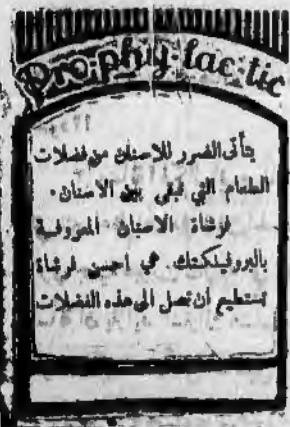 Pro-phy-lac-tic
يتأتى الضرر للاسنان من فضلات
الطعام التي تبقى بين الاسنان .
فرشاة الاسنان المعروفة
بالبروفيلكتك. هي احسن فرشاة
تستطيع ان تصل الى هذه الفضلات